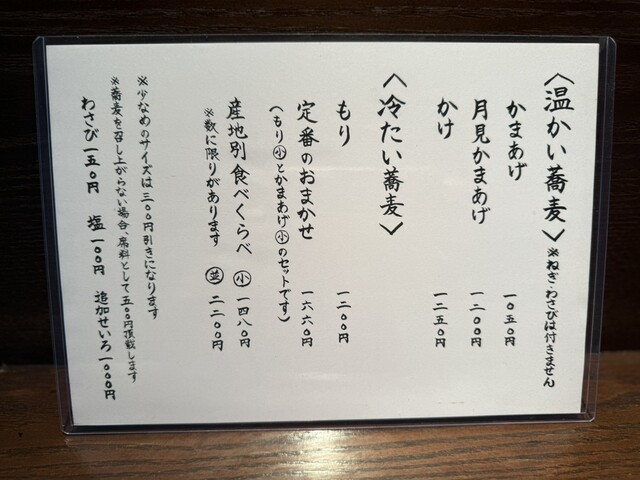 〈温かい蕎麦〉※ねぎ・わさびは付きません
かまあげ 一〇五〇円
月見かまあげ 一二〇〇円
かけ 一二五〇円
〈冷たい蕎麦〉
もり 一二〇〇円
定番のおまかせ 一六六〇円
(もり小とかまあげ小のセットです)
産地別食べくらべ 小 一四八〇円
※数に限りがあります 並 二二〇〇円
※少なめのサイズは三〇〇円引きになります
※蕎麦を召し上がらない場合、席料として五〇〇円頂戴します
わさび一五〇円 塩一〇〇円 追加せいろ一〇〇〇円